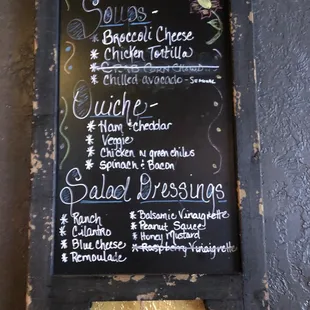 Soups -
* Broccoli Cheese
* Chicken Tortilla
* Crab Corn Chowder
* Chilled avocado -
Quiche -
* Ham & cheddar
* Veggie
* Chicken n green chiles
* Spinach & Bacon
Salad Dressings
* Ranch
* Cilantro
* Blue cheese
* Remoulade
* Balsamic Vinaigrette
* Peanut Sauce
* Honey Mustard
* Raspberry Vinaigrette